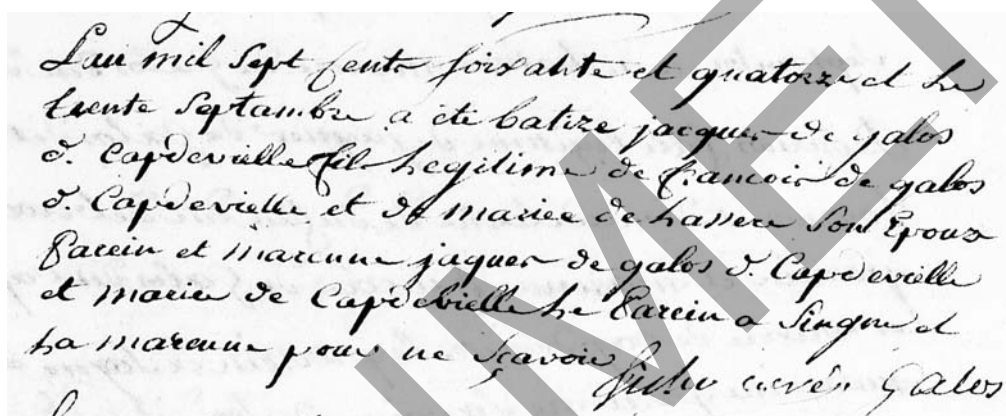 Lan mil Sept Cents soixante et quatorze et le
trente Septambre a été batize jacques de galos
d. Capdevielle fils Legitime de francois de galos
d. Capdevielle et de mariee de Lassere son Epouz
Parein et marenne jaques de galos d. Capdevielle
et marie de Capdebielle Le Parein a Singne et
La marenne pour ne Scavoir
curé Galos
UMEN